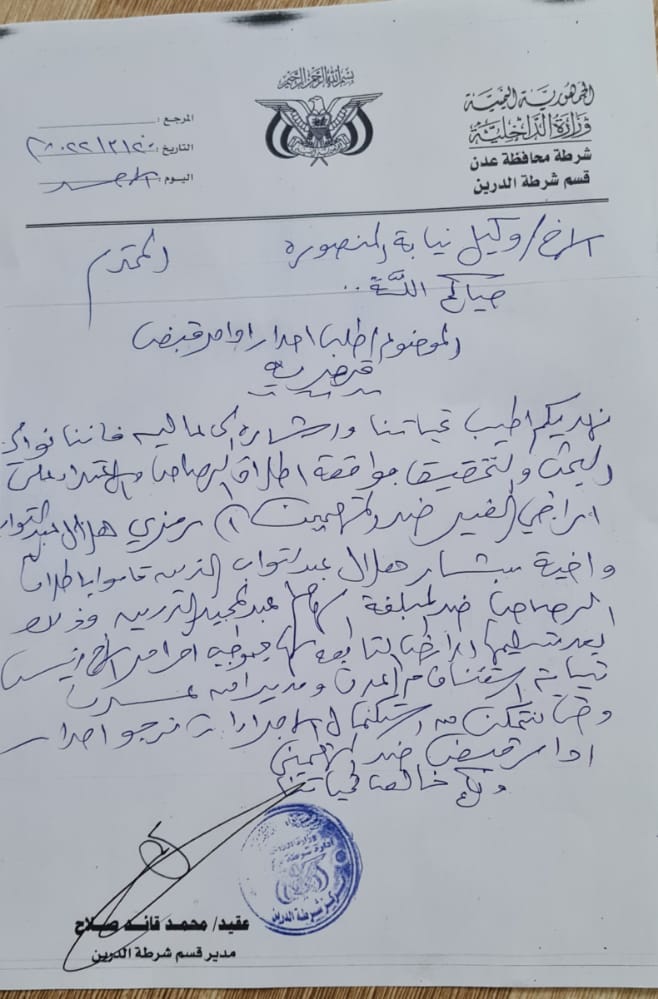 بسم الله الرحمن الرحيم
الجمهورية اليمنية
وزارة الداخلية
شرطة محافظة عدن
قسم شرطة الدرين
المرجع :
التاريخ :
اليوم : الأحد
الاخ/ وكيل نيابة المنصورة المحترم
حياكم الله ..
الموضوع/ طلب اصدار اوامر قبض
قهرية
نهديكم اطيب تحياتنا واشاره الى ماليه فاننا نوالي
البحث والتحقيق بواقعة اطلاق الرصاص والاعتداء على
اراضي الغير ضد المتهمين / رمزي هلال عبدالتواب
واخية بشار هلال عبدالتواب قاموا باطلاق
الرصاص ضد المبلغة عبدالمجيد وذلك
بعد التابعه لها بموجب اوامر الاخ رئيس
نيابة استئناف م/عدن ومدير امن عدن
وحتى نتمكن من استكمال الاجراءات نرجو اصدار
اوامر قبض ضد المتهمين
ولكم خالص تحياتنا
عقيد/ محمد قائد صلاح
مدير قسم شرطة الدرين